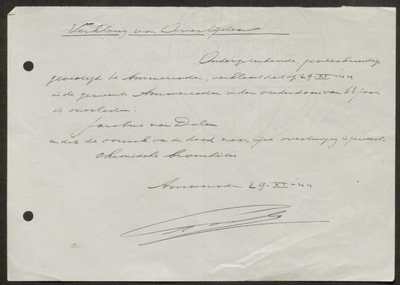 Verklaring van Overlijden
Ondergetekende, geneeskundige
gevestigd te Ammerzoden, verklaart dat op 29-XI-44
in de gemeente Ammerzoden in den ouderdom van 66 jaar
is overleden:
Jacobus van Dalen
en dat de oorzaak van de dood naar zijne overtuiging is geweest:
chronische bronchitis
Ammerzoden 29-XI-44